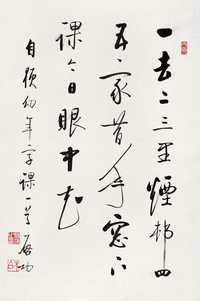 一去二三里煙邨四
五家昔年窗下
課今日眼中花
自幼年字課一首 启功